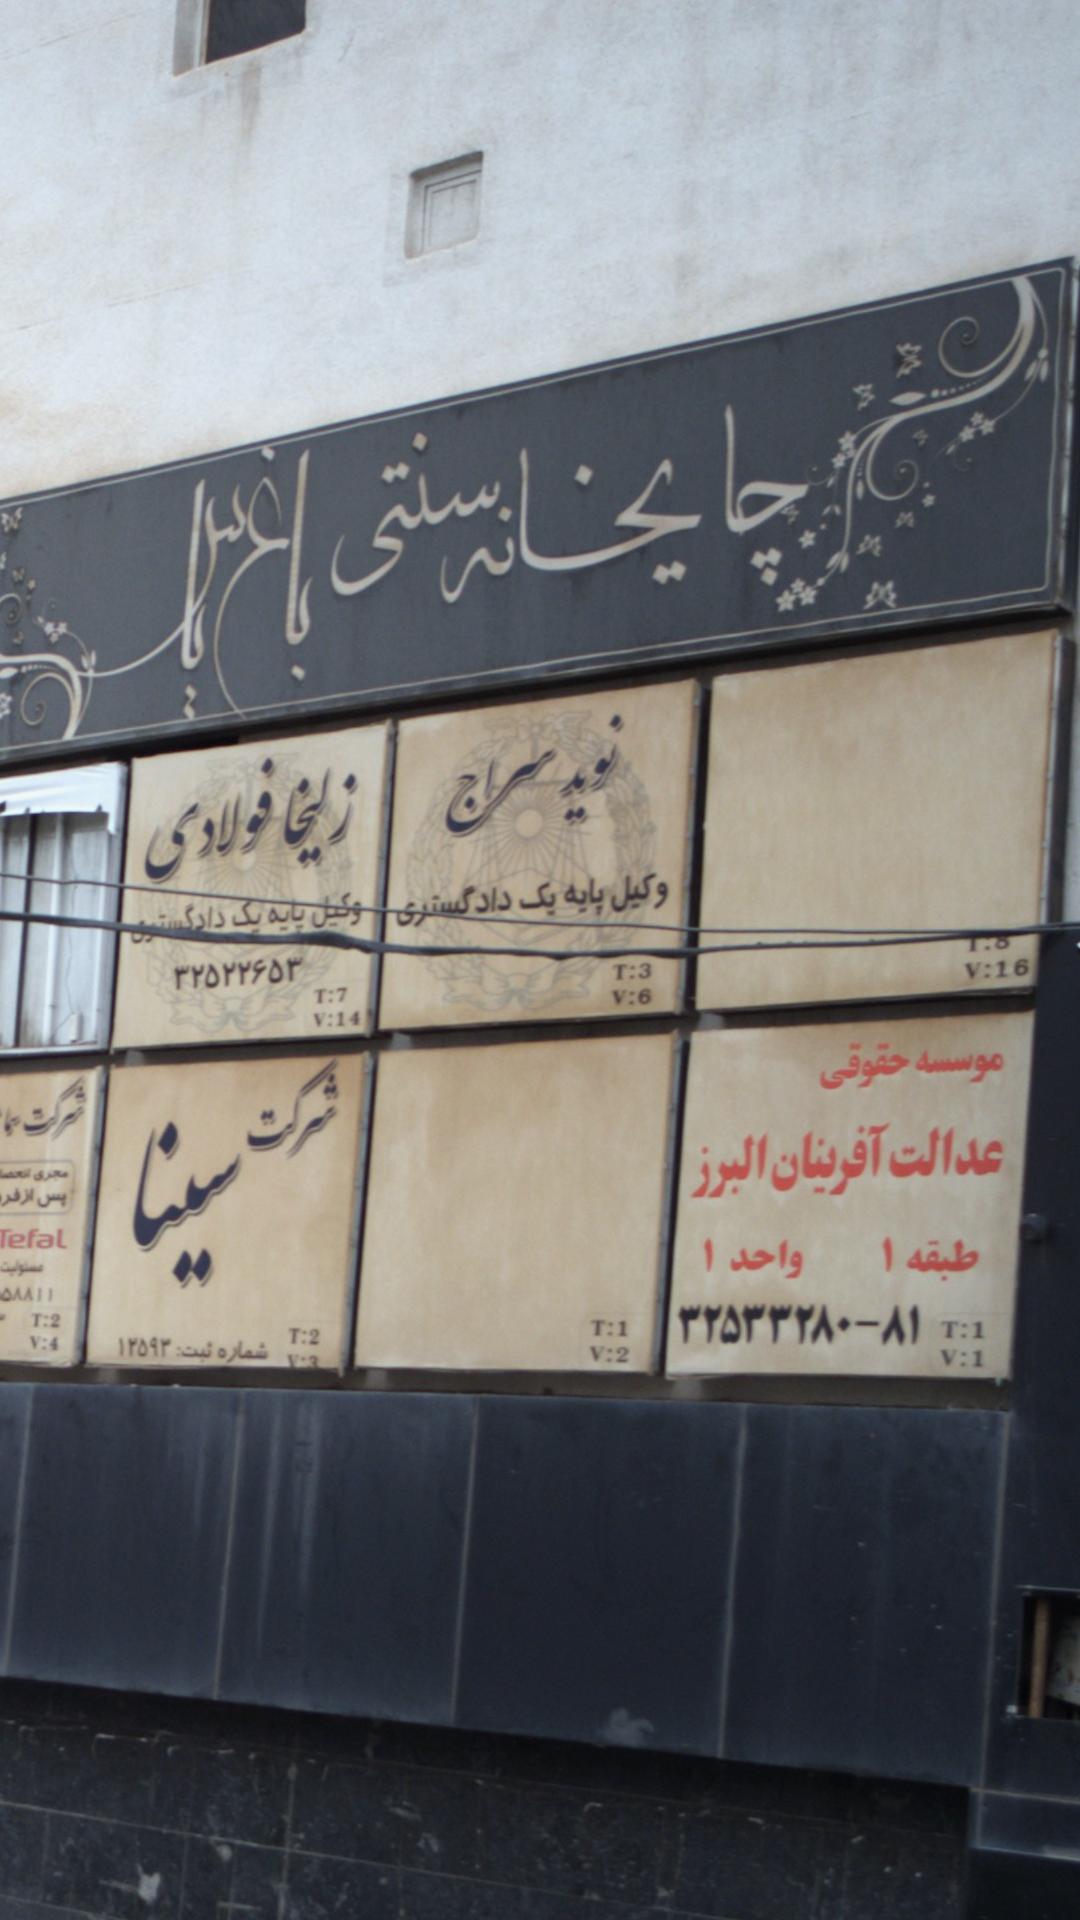 چایخانه سنتی باغ
T:8
V:16
نوید سراج
وکیل پایه یک دادگستری
T:3
V:6
زلیخا فولادی
وکیل پایه یک دادگستری
۳۲۵۲۲۶۵۳
T:7
V:14
موسسه حقوقی
عدالت آفرینان البرز
طبقه ۱ واحد ۱
۳۲۵۳۳۲۸۰-۸۱
T:1
V:1
T:1
V:2
شرکت سینا
شماره ثبت: ۱۲۵۹۳
T:2
V:3
شرکت
مجری
پس از
Tefal
مسئولیت
۵۸۸۱۱
T:2
V:4